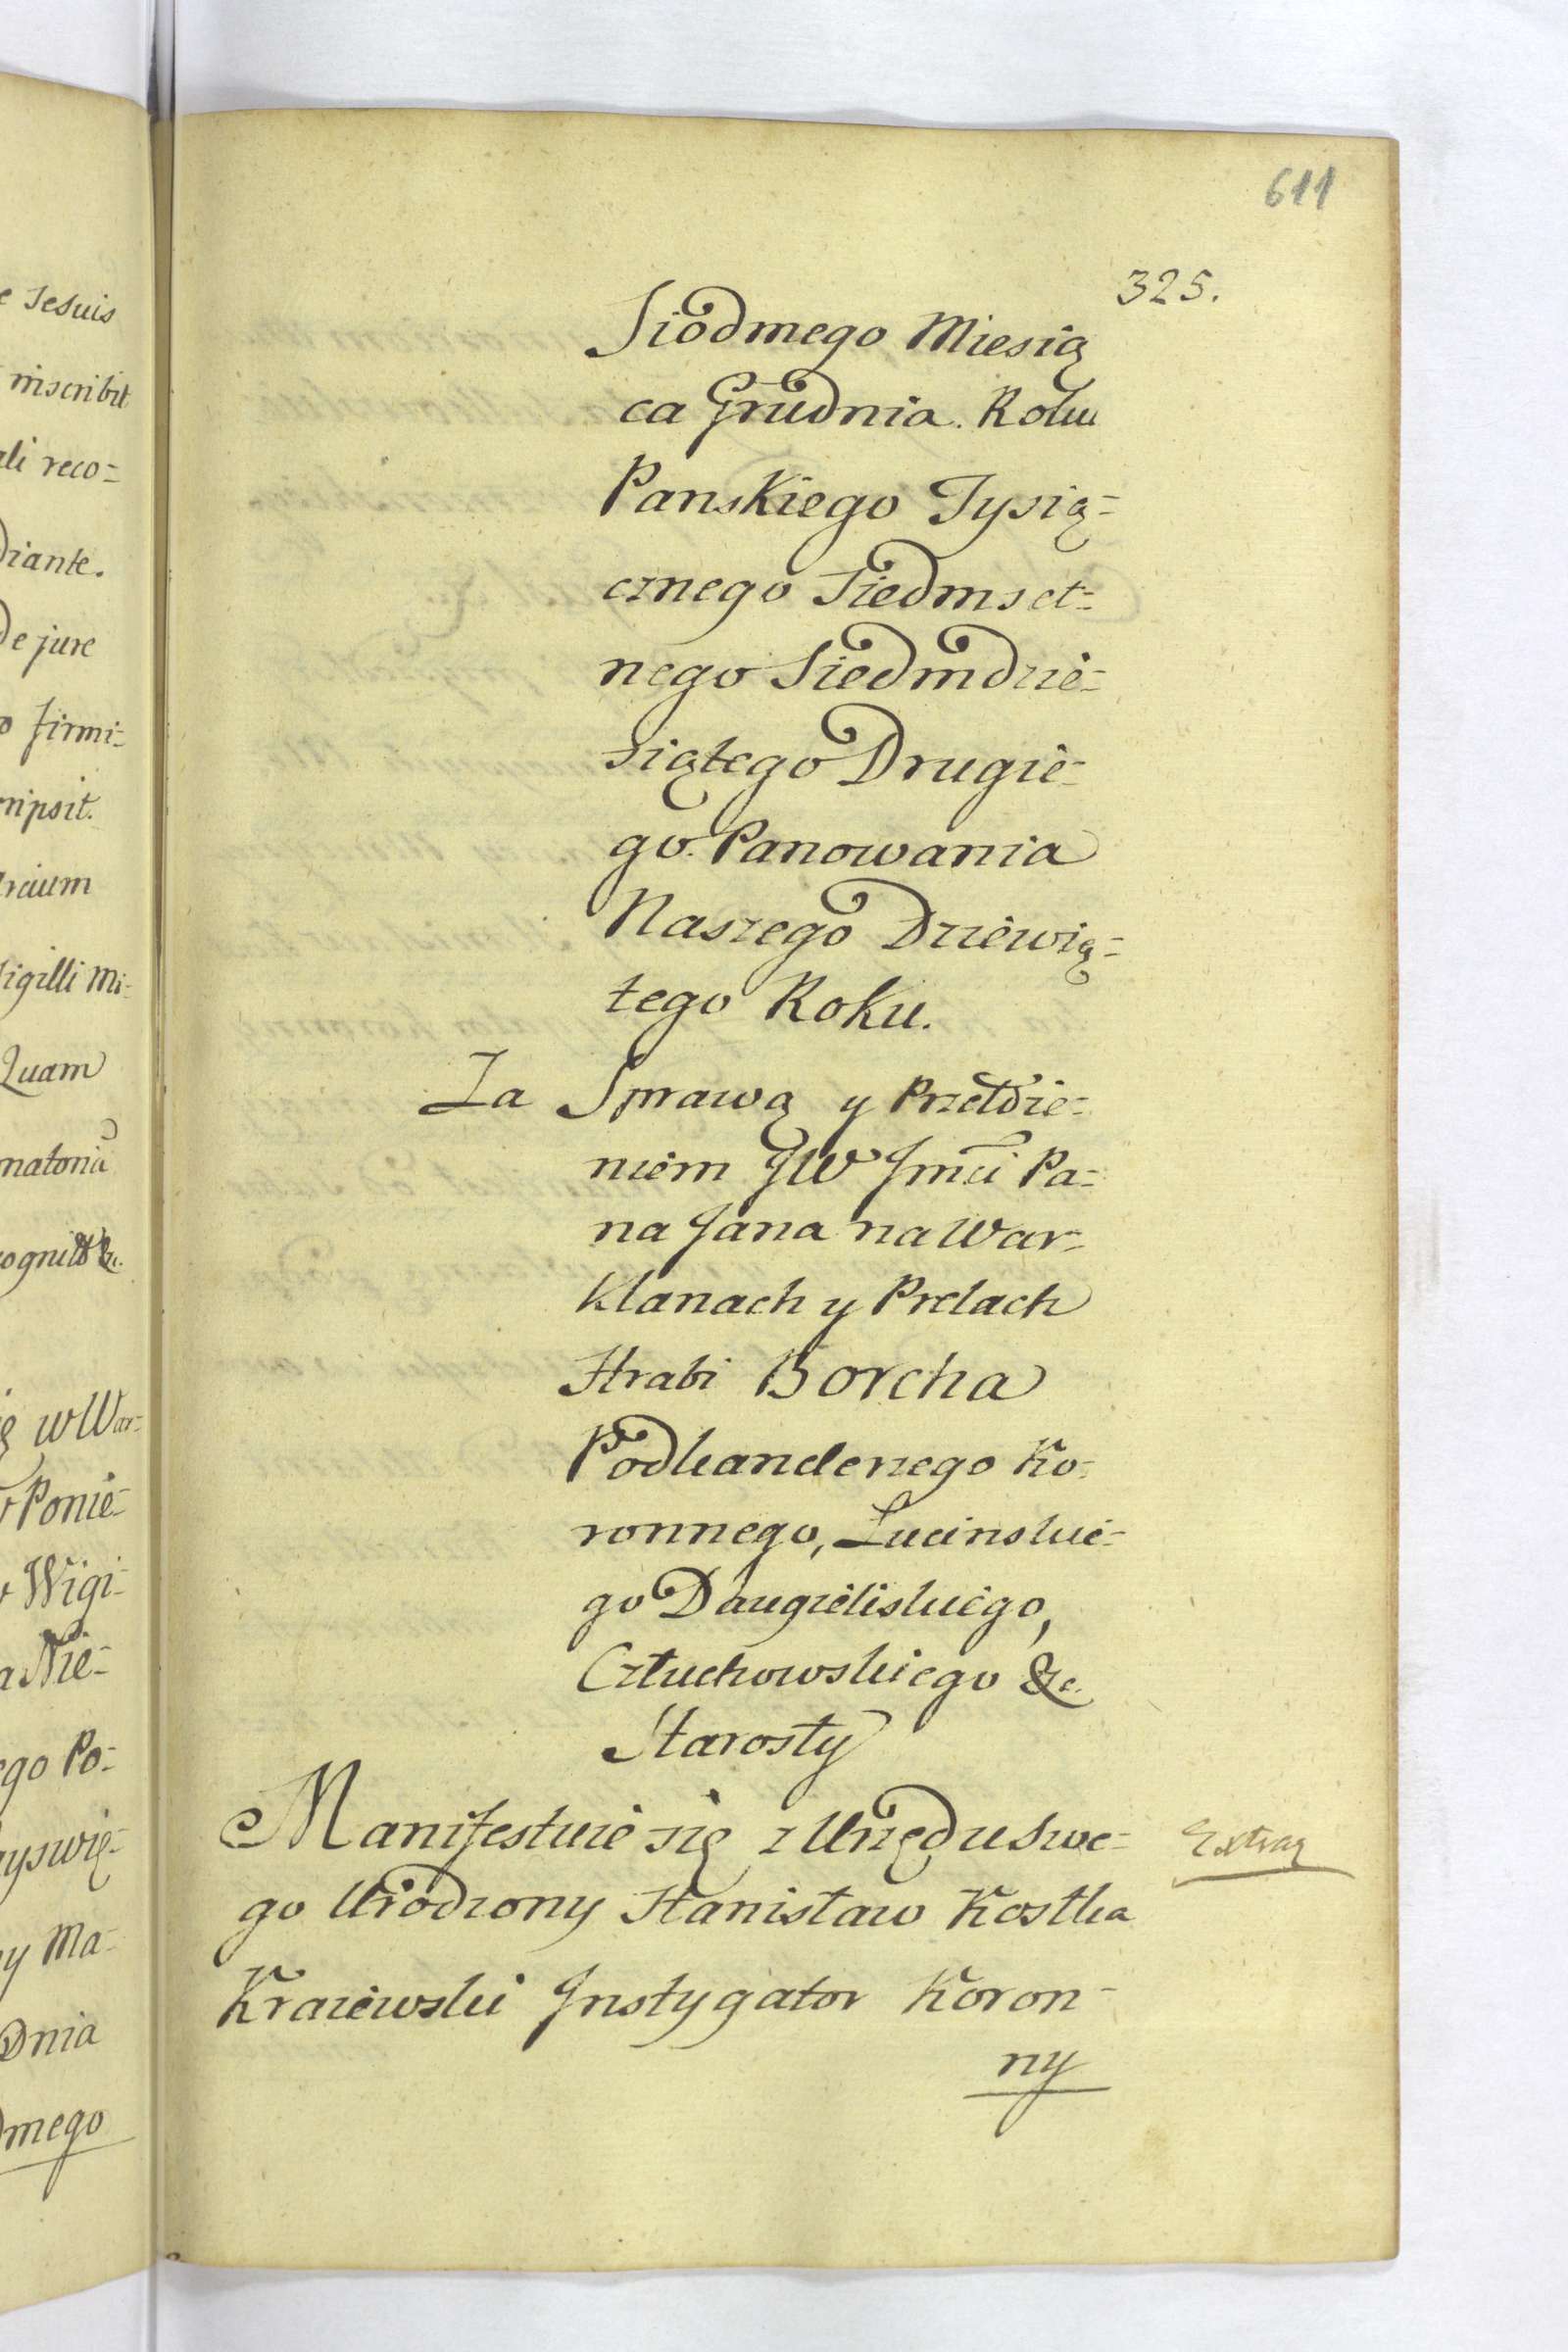 e Jesuis
inscribit
ali reco=
diante.
de jure
o firmi=
ripsit.
Sigilli Mi=
Quam
ę w War=
Ponie=
Wigi=
a Nie=
ego Po=
yswię=
y Ma=
Dnia
dmego
611
325.
Siodmego Miesią
ca Grudnia. Roku
Panskiego Tysią=
cznego Siedmset=
nego Siedmdzie=
siątego Drugie=
go. Panowania
Naszego Dziewią=
tego Roku.
Za Sprawą y Przełoże=
niem JW Jmci Pa=
na Jana na War=
klanach y Prelach
Hrabi Borcha
Podkanclerzego Ko=
ronnego, Lucinskie=
go Daugieliskiego,
Człuchowskiego &c.
Starosty
Manifestuie się z Urzędu Swe=
go Urodzony Stanisław Kostka
Kraiewski Jnstygator Koron=
ny
Extrag